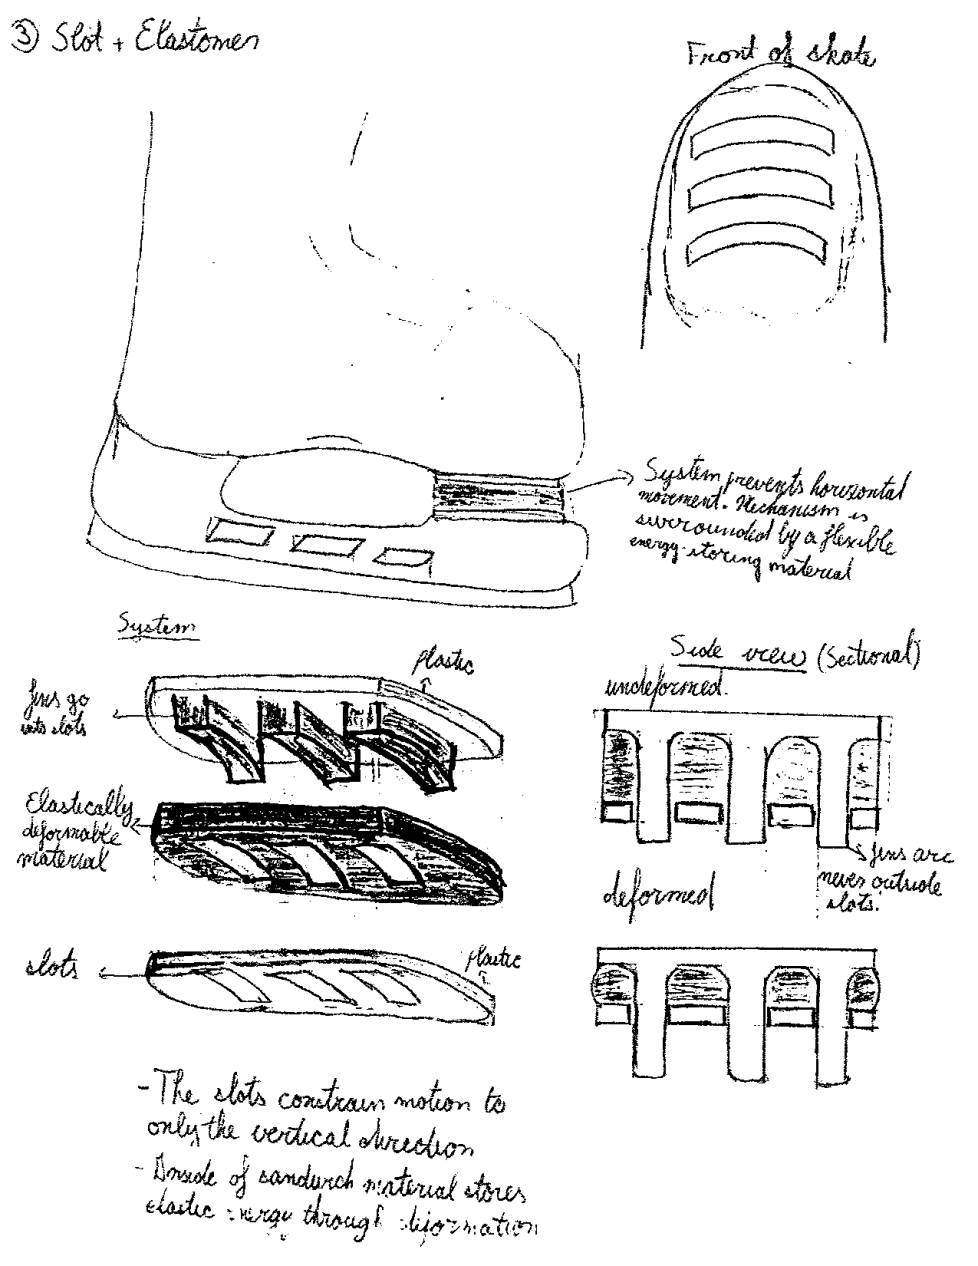 ③ Slot + Elastomer
Front of skate
System prevents horizontal
movement. Mechanism is
surrounded by a flexible
energy-storing material
System
plastic
fins go
into slots
Elastically
deformable
material
slots
plastic
Side view (Sectional)
undeformed.
fins are
never outside
slots.
deformed
- The slots constrain motion to
only the vertical direction
- Inside of sandwich material stores
elastic energy through deformation